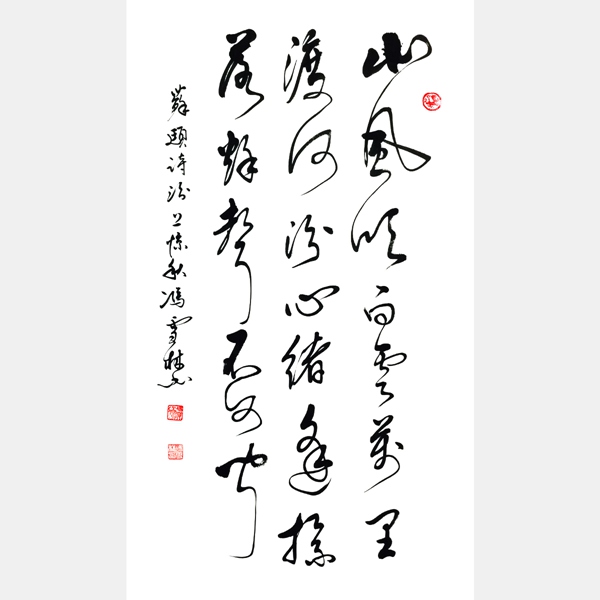 北風吹白雲萬里
渡河汾心緒逢搖
落秋聲不可聞
蘇頲詩汾上惊秋馮雪林書